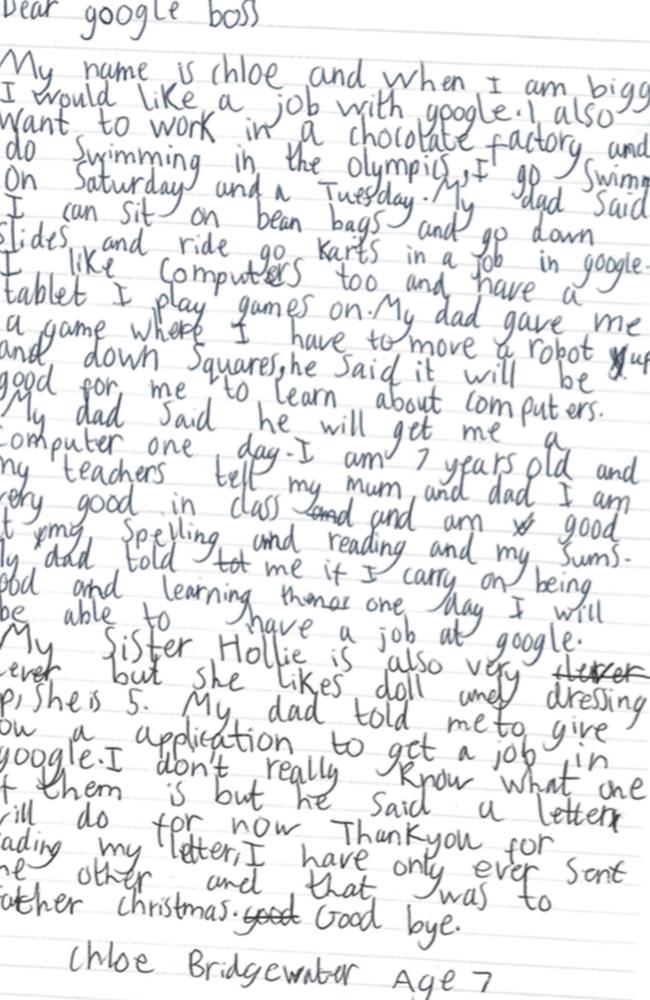 Dear google boss
My name is chloe and when I am bigg
I would like a job with google. I also
want to work in a chocolate factory and
do Swimming in the olympics, I go Swimm
On Saturday and a Tuesday. My dad said
I can sit on bean bags and go down
slides and ride go karts in a job in google.
I like Computers too and have a
tablet I play games on. My dad gave me
a game where I have to move a robot up
and down Squares, he said it will be
good for me to learn about computers.
My dad said he will get me a
computer one day. I am 7 years old and
my teachers tell my mum and dad I am
very good in class and and am good
t my Spelling and reading and my Sums.
My dad told tot me if I carry on being
ood and learning one day I will
be able to have a job at google.
My Sister Hollie is also very clever
lever but she likes doll and dressing
p, She is 5. My dad told me to give
ou a application to get a job in
google. I don't really know what one
f them is but he said a letter
ill do for now Thankyou for
ading my letter, I have only ever sent
ne other and that was to
ather christmas. good Good bye.
Chloe Bridgewater Age 7